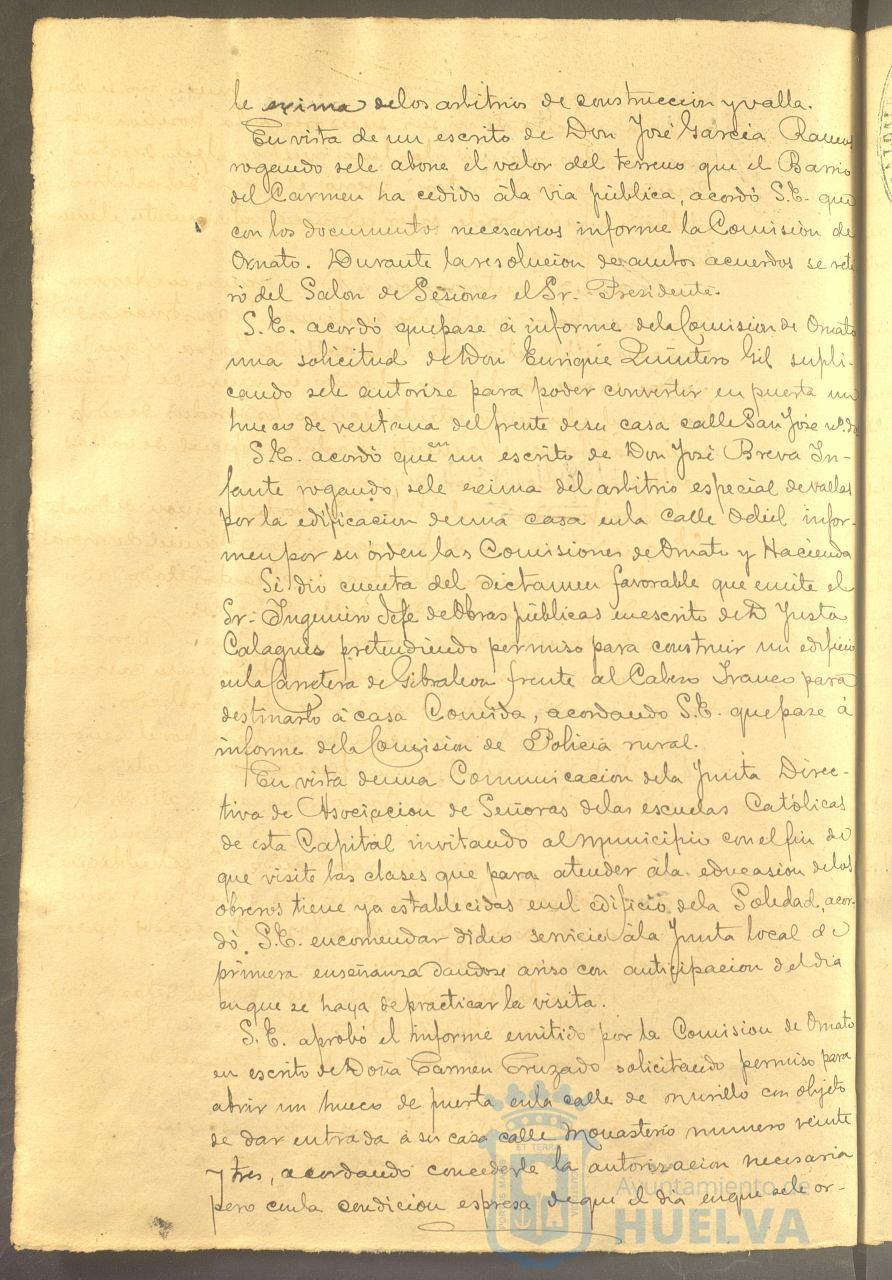 le exima de los arbitrios de construccion y valla.
En vista de un escrito de Don José Garcia Ramos
rogando se le abone el valor del terreno que el Barrio
del Carmen ha cedido á la via pública, acordó S.E. que
con los documentos necesarios informe la Comision de
Ornato. Durante la resolucion de ambos acuerdos se reti
ró del Salon de Sesiones el Sr. Presidente.
S.E. acordó que pase á informe de la Comision de Ornato
una solicitud de Don Enrique Quintero Gil supli-
cando se le autorize para poder convertir en puerta un
hueco de ventana del frente de su casa calle San José nº
S.E. acordó que en un escrito de Don José Breva In-
fante rogando se le exima del arbitrio especial de vallas
por la edificacion de una casa en la calle Odiel infor-
men por su órden las Comisiones de Ornato y Hacienda
Se dió cuenta del dictamen favorable que emite el
Sr. Ingeniero Jefe de Obras públicas en escrito de D Justa
pretendiendo permiso para construir un edificio
en la Carretera de Gibraleon frente al Cabezo para
destinarlo á casa Comida, acordando S.E. que pase á
informe de la Comision de Policia rural.
En vista de una Comunicacion de la Junta Direc-
tiva de Asociacion de Señoras de las escuelas Católicas
de esta Capital invitando al Municipio con el fin de
que visite las clases que para atender á la educasion de los
obreros tiene ya establecidas en el edificio de la Soledad, acor-
dó S.E. encomendar dicho servicio á la Junta local de
primera enseñanza dandose aviso con anticipacion del dia
en que se haya de practicar la visita.
S.E. aprobó el informe emitido por la Comision de Ornato
en escrito de Doña Carmen Cruzado solicitando permiso para
abrir un hueco de puerta en la calle de Murillo con objeto
de dar entrada á su casa calle Monasterio numero veinte
y tres, acordando concederle la autorizacion necesaria
pero con la condicion espresa de que el dia en que se le or-
Ayuntamiento de
HUELVA